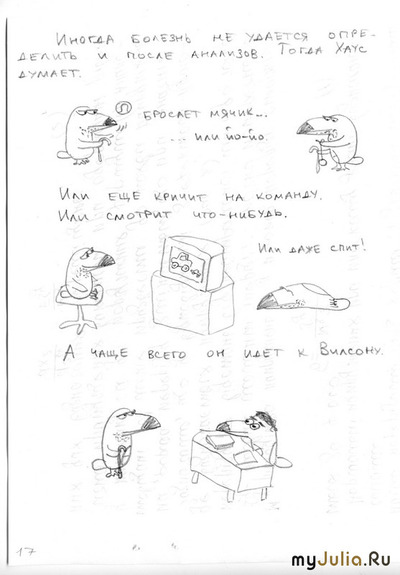 Иногда болезнь не удается опре-
делить и после анализов. Тогда Хаус
думает.
Бросает мячик...
... или йо-йо.
Или еще кричит на команду.
Или смотрит что-нибудь.
Или даже спит!
А чаще всего он идет к Вилсону.
17
myJulia.Ru